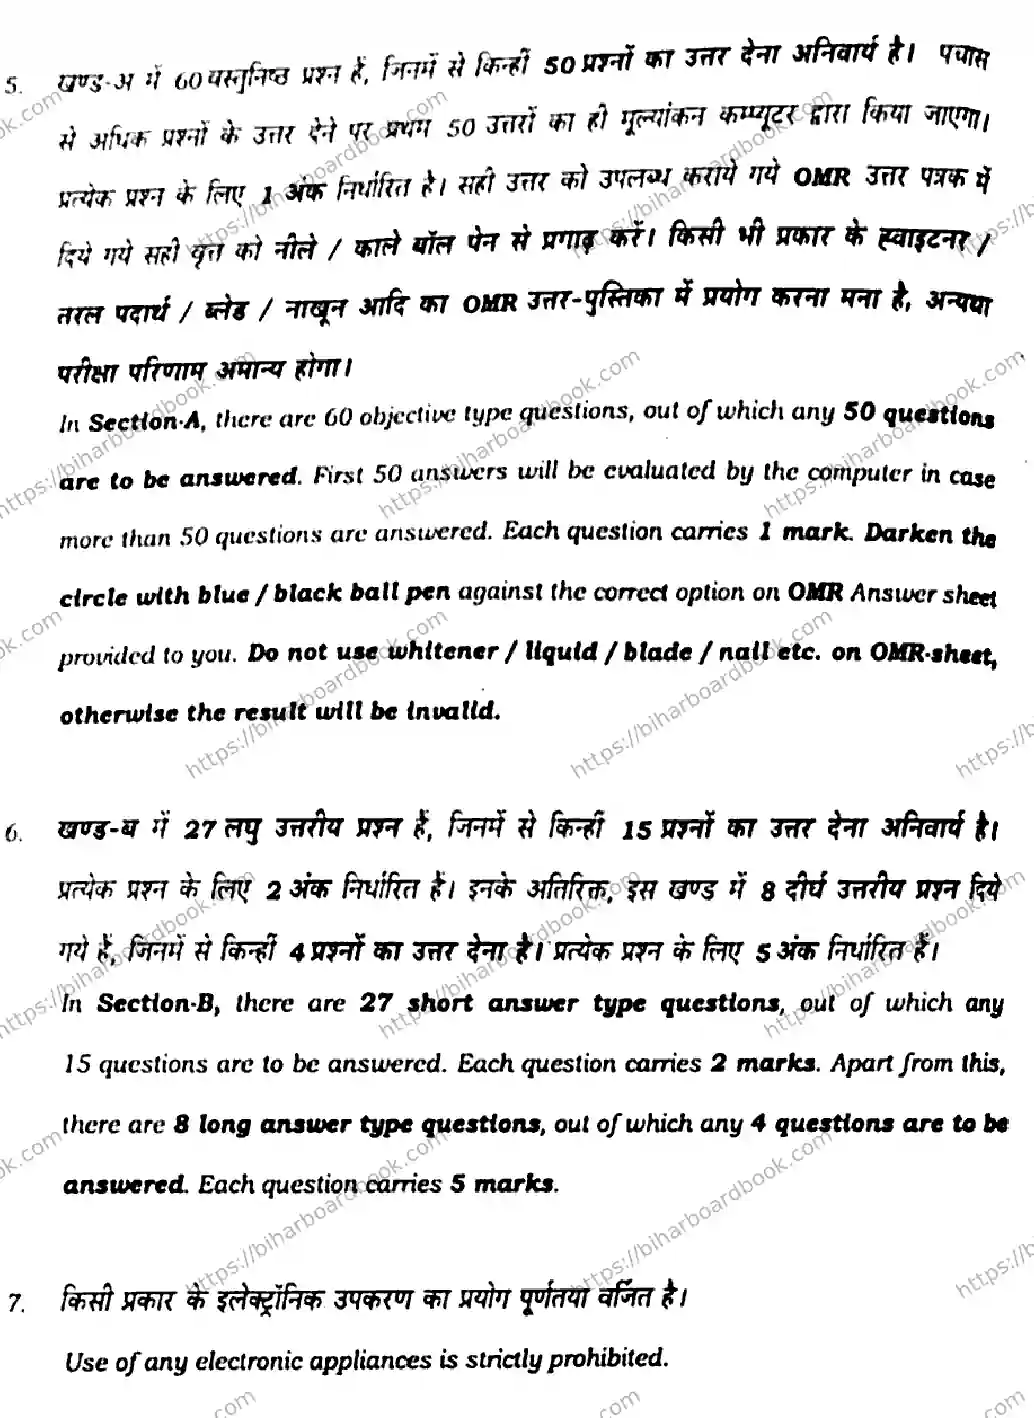 5. खण्ड-अ में 60 वस्तुनिष्ठ प्रश्न हैं, जिनमें से किन्हीं 50 प्रश्नों का उत्तर देना अनिवार्य है। पचास
से अधिक प्रश्नों के उत्तर देने पर प्रथम 50 उत्तरों का ही मूल्यांकन कम्प्यूटर द्वारा किया जाएगा।
प्रत्येक प्रश्न के लिए 1 अंक निर्धारित है। सही उत्तर को उपलब्ध कराये गये OMR उत्तर पत्रक में
दिये गये सही वृत्त को नीले / काले बॉल पेन से प्रगाढ़ करें। किसी भी प्रकार के ह्वाइटनर /
तरल पदार्थ / ब्लेड / नाखून आदि का OMR उत्तर-पुस्तिका में प्रयोग करना मना है, अन्यथा
परीक्षा परिणाम अमान्य होगा।
In Section-A, there are 60 objective type questions, out of which any 50 questions
are to be answered. First 50 answers will be evaluated by the computer in case
more than 50 questions are answered. Each question carries 1 mark. Darken the
circle with blue / black ball pen against the correct option on OMR Answer sheet
provided to you. Do not use whitener / liquid / blade / nail etc. on OMR-sheet,
otherwise the result will be invalid.
6. खण्ड-ब में 27 लघु उत्तरीय प्रश्न हैं, जिनमें से किन्हीं 15 प्रश्नों का उत्तर देना अनिवार्य है।
प्रत्येक प्रश्न के लिए 2 अंक निर्धारित है। इनके अतिरिक्त, इस खण्ड में 8 दीर्घ उत्तरीय प्रश्न दिये
गये हैं, जिनमें से किन्हीं 4 प्रश्नों का उत्तर देना है। प्रत्येक प्रश्न के लिए 5 अंक निर्धारित है।
In Section-B, there are 27 short answer type questions, out of which any
15 questions are to be answered. Each question carries 2 marks. Apart from this,
there are 8 long answer type questions, out of which any 4 questions are to be
answered. Each question carries 5 marks.
7. किसी प्रकार के इलेक्ट्रॉनिक उपकरण का प्रयोग पूर्णतया वर्जित है।
Use of any electronic appliances is strictly prohibited.
https://biharboardbook.com